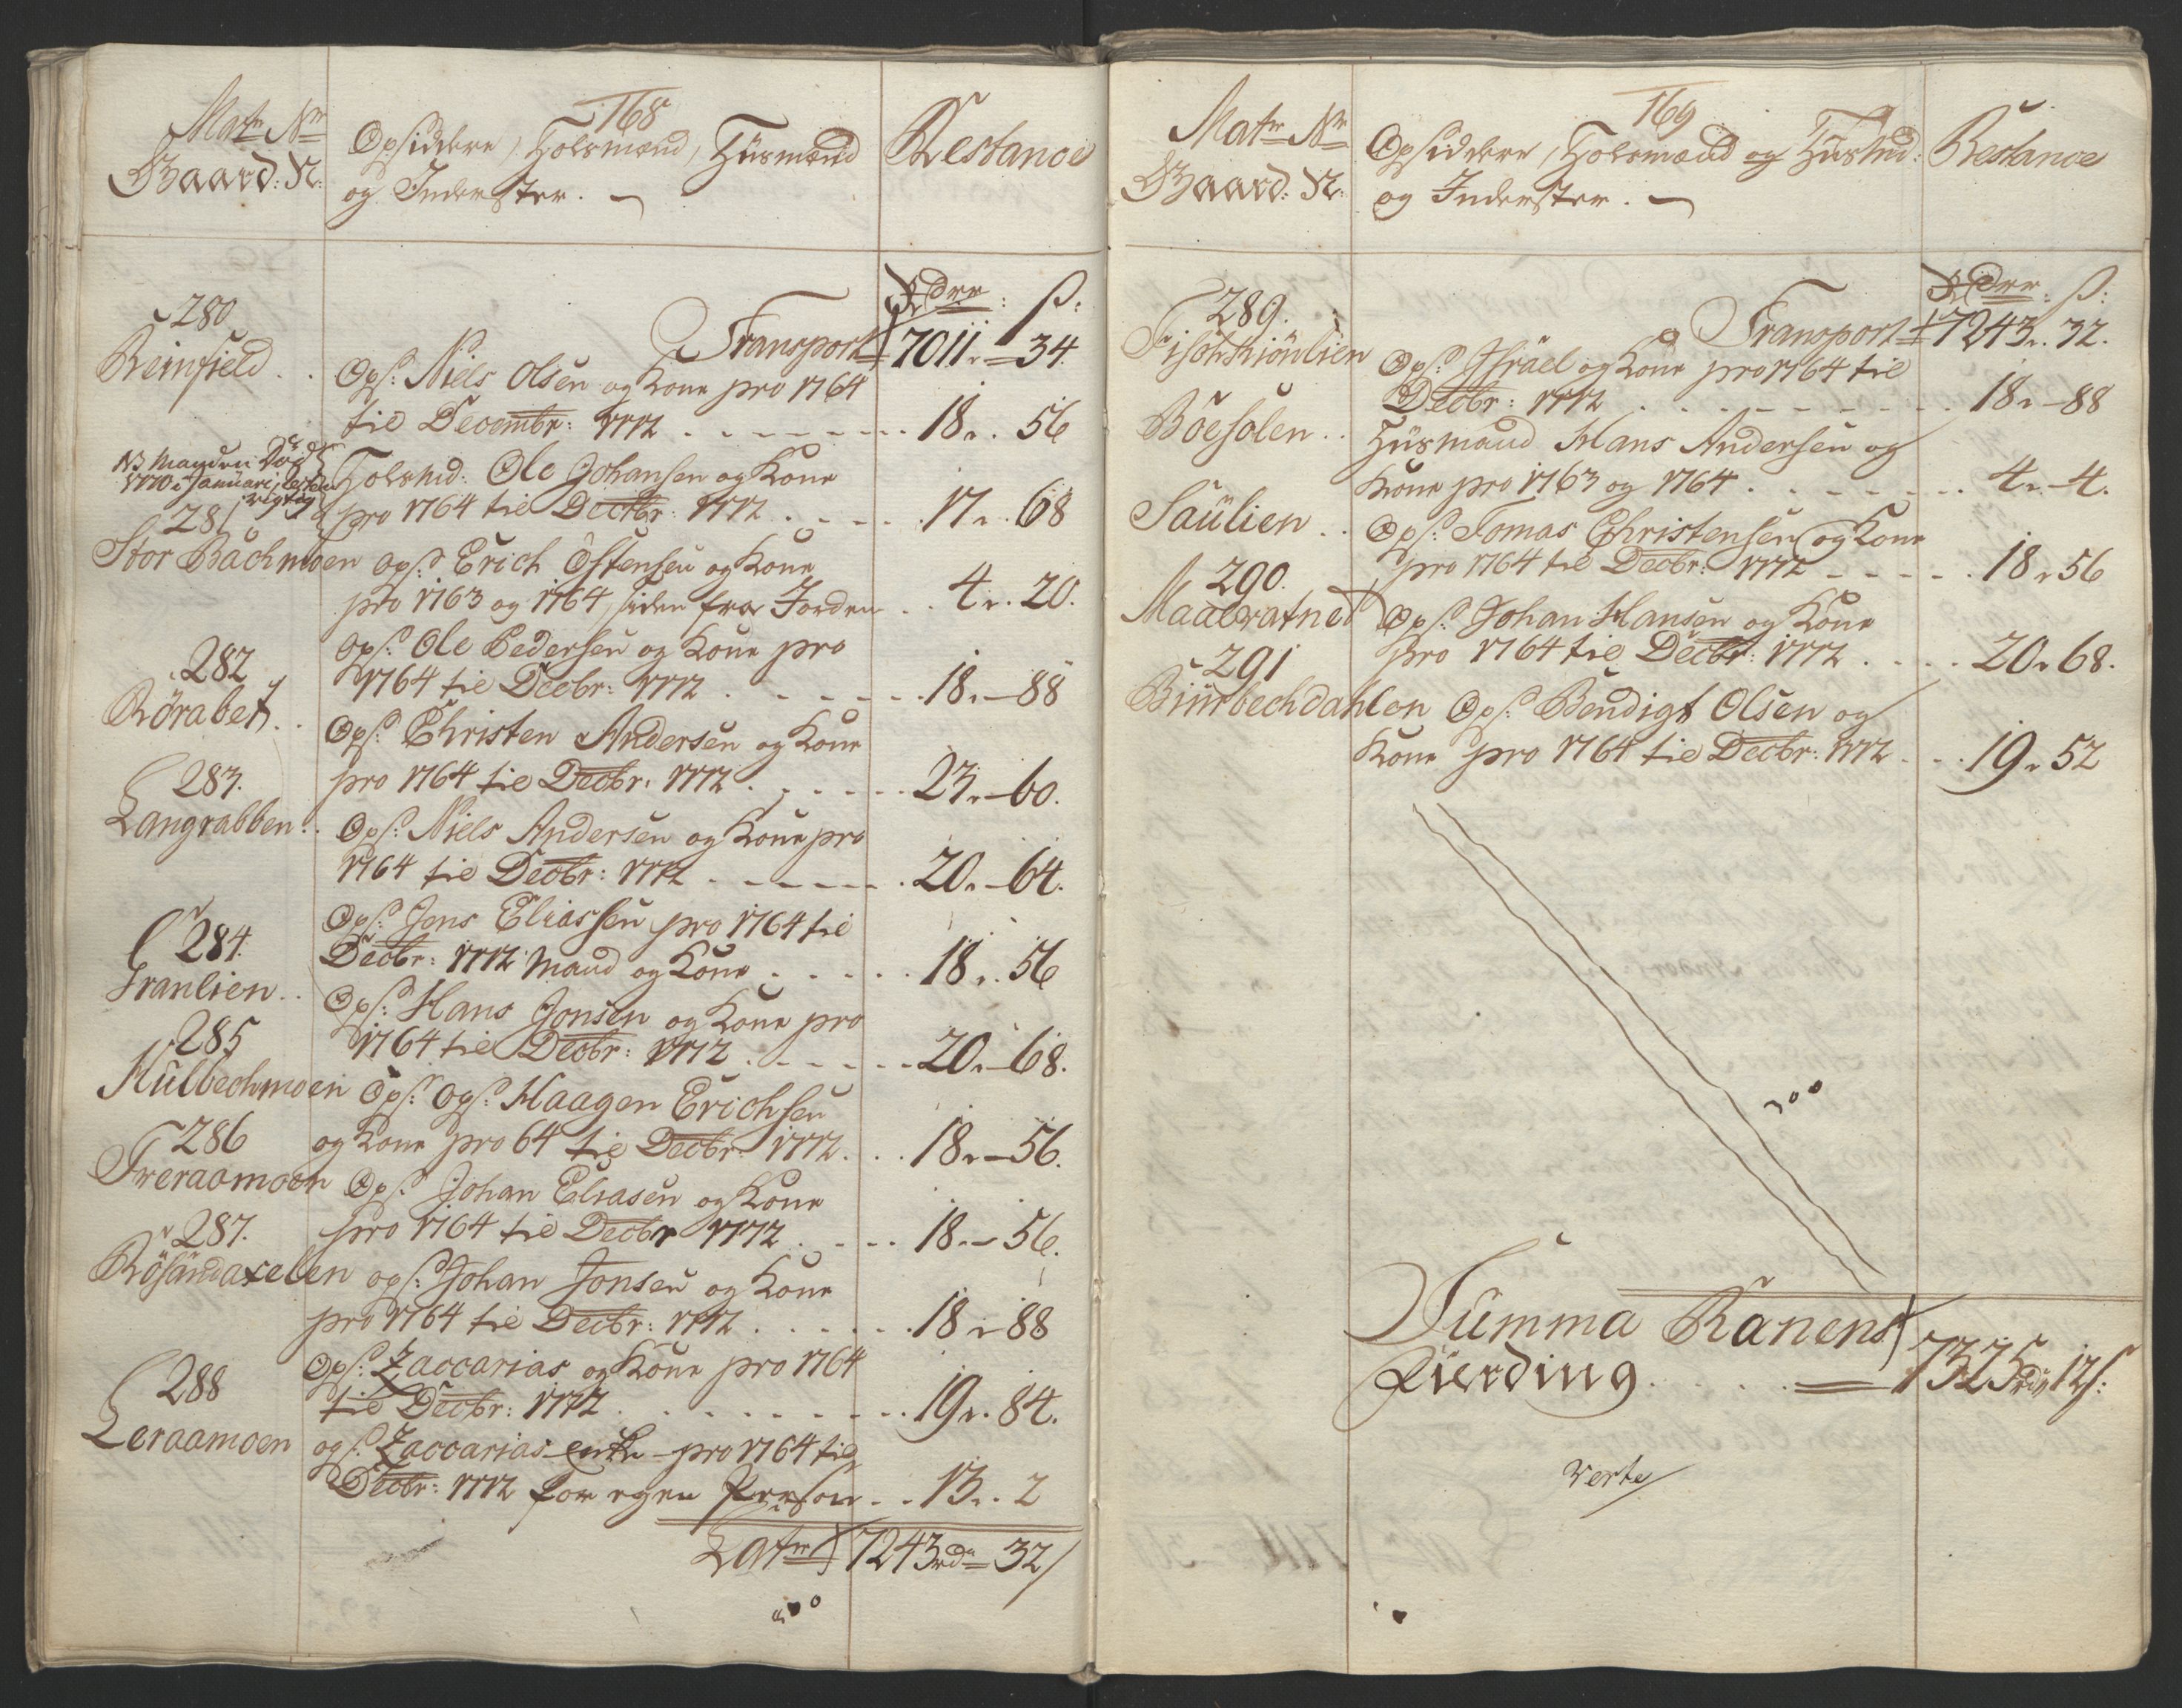 168
Matr Nr
Gaard: N:
Opsiddere, Holsmænd, Huusmænd
og Inderster.
Restance
Rdrr: ß:
Transport 7011 „ 34.
280
Reinfield . .
Ops: Niels Olsen og Kone pro 1764
til Decembr: 1772 . . . 18 „ 56
NB Manden Död
1770 i Januari, resten
rigtig
Holsmd: Ole Johansen og Kone
pro 1764 til Decbr: 1772 . . . 17 „ 68
281
Stor Bachmoen Ops: Erich Östensen og Kone
pro 1763 og 1764, siden fra Jorden . . 4 „ 20.
Ops: Ole Pedersen og Kone pro
1764 til Decbr: 1772 . . . 18 „ 88
282
Rörabet . .
Ops: Christen Andersen og Kone
pro 1764 til Decbr: 1772 . . . 23 „ 60.
283.
Langrabben . .
Ops: Niels Andersen og Kone pro
1764 til Decbr: 1772 . . . 20 „ 64.
Ops: Jens Eliassen pro 1764 til
Decbr: 1772 Mand og Kone . . . 18 „ 56
284.
Granlien . .
Ops: Hans Jonsen og Kone pro
1764 til Decbr: 1772 . . . 20 „ 68.
285
Hulbechmoen Ops: Ops: Haagen Erichsen
og Kone pro 64 til Decbr: 1772 . . . 18 „ 56.
286
Treraamoen Ops: Johan Eliasen og Kone
pro 1764 til Decbr 1772 . . . 18 „ 56.
287.
Rösandaxelen ops: Johan Jonsen og Kone
pro 1764 til Decbr: 1772 . . . 18 „ 88
Ops: Zaccarias og Kone pro 1764
til Decbr: 1772 . . . 19 „ 84.
288
Leraamoen
ops: Zaccarias enke pro 1764 til
Decbr: 1772 for egen Person . . 13 „ 2
Latr 7243 rd 32/
169
Matr Nr
Gaard: N:
Opsiddere, Holsmænd og Huusmd:
og Inderster.
Restance
Rdrr: ß:
Transport 7243 „ 32.
289.
Fischtiönlien
Ops: Israel og Kone pro 1764 til
Decbr: 1772 . . . 18 „ 88
Böesolen . .
Huusmand Hans Andersen og
Kone pro 1763 og 1764 . . . 4 „ 4.
Saulien . .
Ops: Tomas Christensen og Kone
pro 1764 til Decbr: 1772 . . . 18 „ 56
290.
Maalvatnet
Ops: Johan Hansen og Kone
pro 1764 til Decbr: 1772 . . . 20 „ 68.
291
Biurbechdahlen Ops: Bendigt Olsen og
Kone pro 1764 til Decbr: 1772 . . . 19 „ 52
Summa Ranens
Fierding . . . 7325 rd 12 ß:
Verte